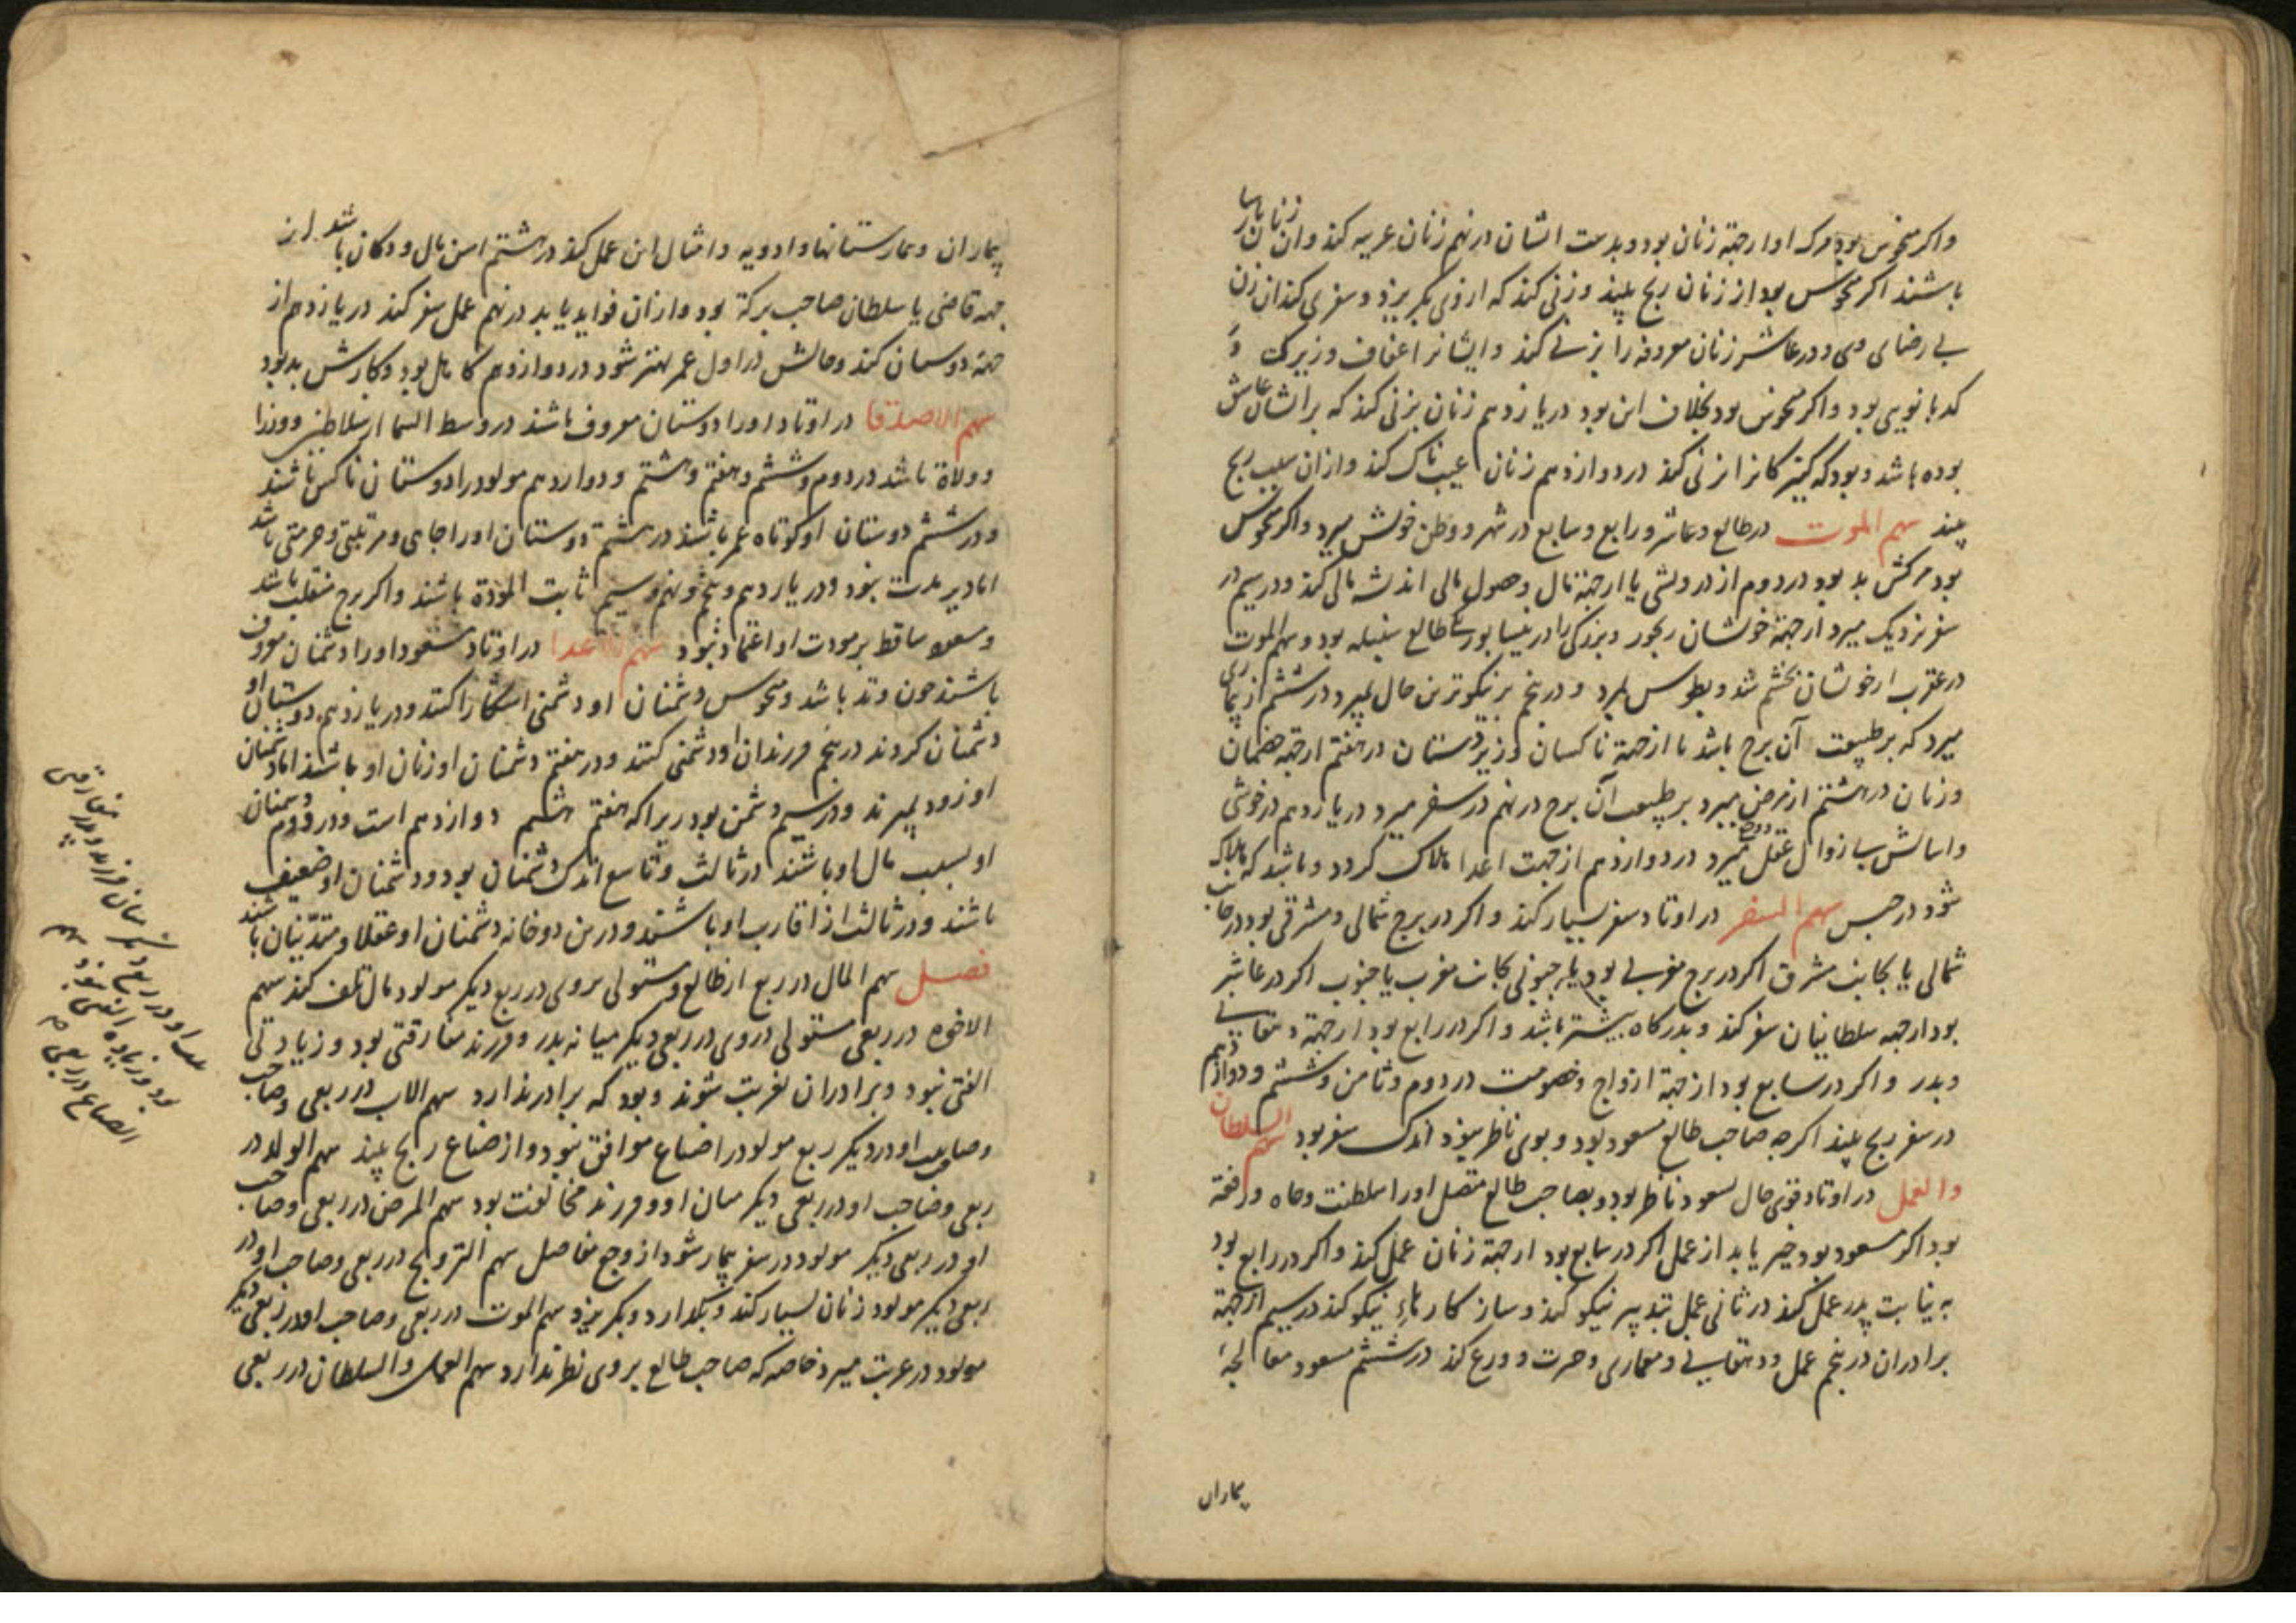 واکر منحوس بود مرک او از جهة زنان بود و بدست ایشان در نهم زنان غریبه کند و آن زنان پارسا
باشند اکر منحوس بود از زنان رنج بیند و زنی کند که از وی بکریزد و سفری کند آن زن
بی رضای وی و در عاشر زنان معروفه را بزنی کند و ایشانرا عفاف و زیرکی و
کدبانویی بود و اکر منحوس بود بخلاف این بود در یازدهم زنان بزنی کند که بر ایشان عاشق
بوده باشد و بود که کنیزکانرا بزنی کند در دوازدهم زنان عیب ناک کند و از آن سبب رنج
بیند سهم الموت در طالع و عاشر و رابع و سابع در شهر و وطن خویش میرد و اکر منحوس
بود مرکش بد بود در دوم از درویشی یا از جهة مال و حصول مالی اندیشه مالی کند و در سیم در
سفر نزدیک میرد از جهة خویشان رنجور و بزرکی را در نیسابور طالع سنبله بود و سهم الموت
در عقرب از خویشان بخشم شد و بطوس بمرد و در پنجم بر نیکوترین حال بمیرد در ششم از بیماری
میرد که بر طبیعت آن برج باشد یا از جهة ناکسان و زیردستان در هفتم از جهة خصمان
و زنان در هشتم از مرض میرد بر طبیعت آن برج در نهم در سفر میرد در یازدهم در خوشی
و آسایش بی زوال عقل میرد در دوازدهم از جهت اعدا هلاک کردد و باشد که هلاک
شود در حبس سهم السفر در اوتاد سفر بسیار کند و اکر در برج شمالی و مشرقی بود در جانب
شمالی یا بجانب مشرق اکر در برج مغربی بود یا جنوبی بجانب مغرب یا جنوب اکر در عاشر
بود از جهه سلطانیان سفر کند و بدرکاه بیشتر باشد و اکر در رابع بود از جهة دهقانی
و پدر و اکر در سابع بود از جهة ازواج و خصومت در دوم و ثامن و ششم و دوازدهم
در سفر رنج بیند اکرچه صاحب طالع مسعود بود و بوی ناظر نبود اندک سفر بود سهم السلطان
والعمل در اوتاد قوی حال بسعود ناظر بود و بصاحب طالع متصل او را سلطنت و جاه و رفعة
بود اکر مسعود بود خیر یابد از عمل اکر در سابع بود از جهة زنان عمل کند و اکر در رابع بود
به نیابت پدر عمل کند در ثانی عمل بتدبیر نیکو کند و ساز کارهاء نیکو کند در سیم از جهة
برادران در پنجم عمل و دهقانی و معماری و حرث و زرع کند در ششم مسعود معالجة
بیماران
بیماران و بیمارستانها و ادویه و امثال این عمل کند در هشتم امین مال و دکان باشد از
جهه قاضی یا سلطان صاحب برکة بود و از آن فواید یابد در نهم عمل سفر کند در یازدهم از
جهة دوستان کند و حالش در اول عمر بهتر شود در دوازدهم کاهل بود و کارش بد بود
سهم الاصدقا در اوتاد او را دوستان معروف باشند در وسط السما از سلاطین و وزرا
و ولاة باشد در دوم و ششم و هفتم و هشتم و دوازدهم مولود را دوستان ناکس باشند
و در ششم دوستان او کوتاه عمر باشند در هشتم دوستان او را جاهی و مرتبتی و حرمتی باشد
اما دیر مدت نبود و در یازدهم و پنجم و نهم و سیم ثابت المودة باشند و اکر برج منقلب باشد
و مسعود ساقط بر مودت او اعتماد نبود سهم الاعدا در اوتاد مسعود او را دشمنان معروف
باشند چون وتد باشد و منحوس دشمنان او دشمنی آشکارا کنند و در یازدهم دوستان او
دشمنان کردند در پنجم فرزندان او دشمنی کنند و در هفتم دشمنان او زنان او باشند اما دشمنان
او زود بمیرند و در سیم دشمن بود زیرا که هفتم هشتم دوازدهم است و در دوم دشمنان
او بسبب مال او باشند در ثالث و تاسع اندک دشمنان بود و دشمنان او ضعیف
باشند و در ثالث از اقارب او باشند و درین دو خانه دشمنان او عقلا و متدینان باشند
فصل سهم المال در ربع از طالع و مستولی بر وی در ربع دیکر مولود مال تلف کند سهم
الاخوه در ربعی مستولی در وی در ربعی دیکر میانه پدر و فرزند مفارقتی بود و زیادتی
الفتی نبود و برادران بغربت شوند و بود که برادر ندارد سهم الاب در ربعی و صاحب
وصاحب او در دیکر ربع مولود را ضیاع موافق نبود و از ضیاع رنج بیند سهم الولد در
ربعی و صاحب او در ربعی دیکر میان او و فرزند مخالفت بود سهم المرض در ربعی و صاحب
او در ربعی دیکر مولود در سفر بیمار شود از وجع مفاصل سهم التزویج در ربعی و صاحب او در
ربعی دیکر مولود زنان بسیار کند و نکه دارد و بکریزد سهم الموت در ربعی و صاحب او در ربعی دیکر
مولود در غربت میرد خاصه که صاحب طالع بر وی نظر ندارد سهم العمل والسلطان در ربعی
صاحب او در ربع دیکر میان فرزند و پدر مفارقتی
بود و زیاده الفتی نبود